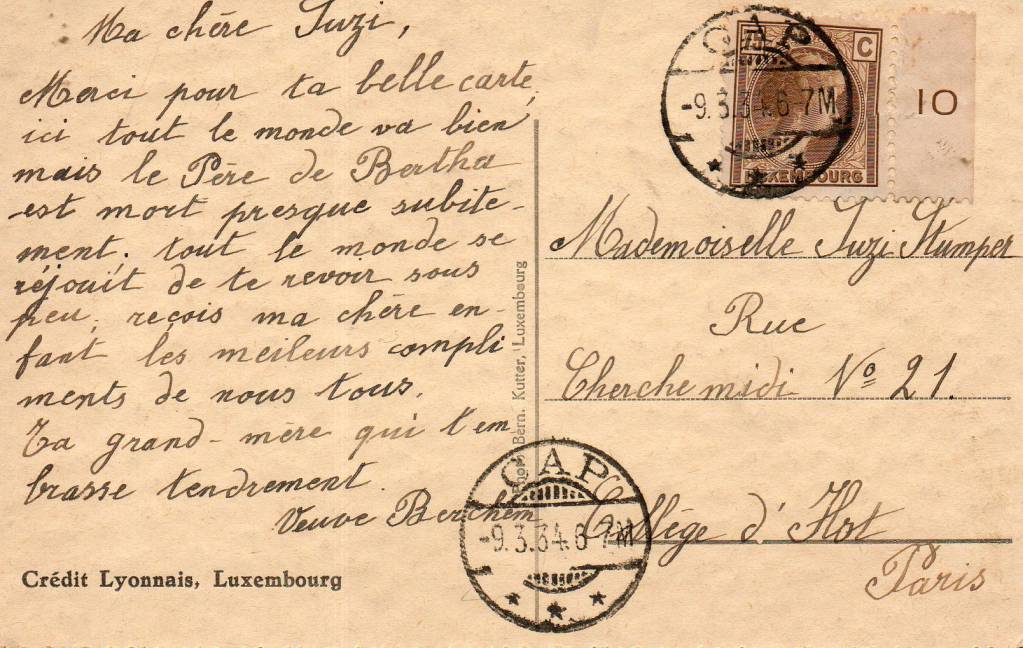 Ma chère Suzi,
Merci pour ta belle carte,
ici tout le monde va bien
mais le Père de Bertha
est mort presque subite-
ment. tout le monde se
réjouit de te revoir sous
peu, reçois ma chère en-
fant les meileurs compli
ments de nous tous.
Ta grand-mère qui t'em
brasse tendrement.
Veuve Berchem
Crédit Lyonnais, Luxembourg
Bern. Kutter, Luxembourg
CAP
-9.3.34.6-7M
75 C
LUXEMBOURG
10
Mademoiselle Suzi Stumper
Rue
Cherche midi Nº 21.
Collège d'Hst
Paris
CAP
-9.3.34.6-7M